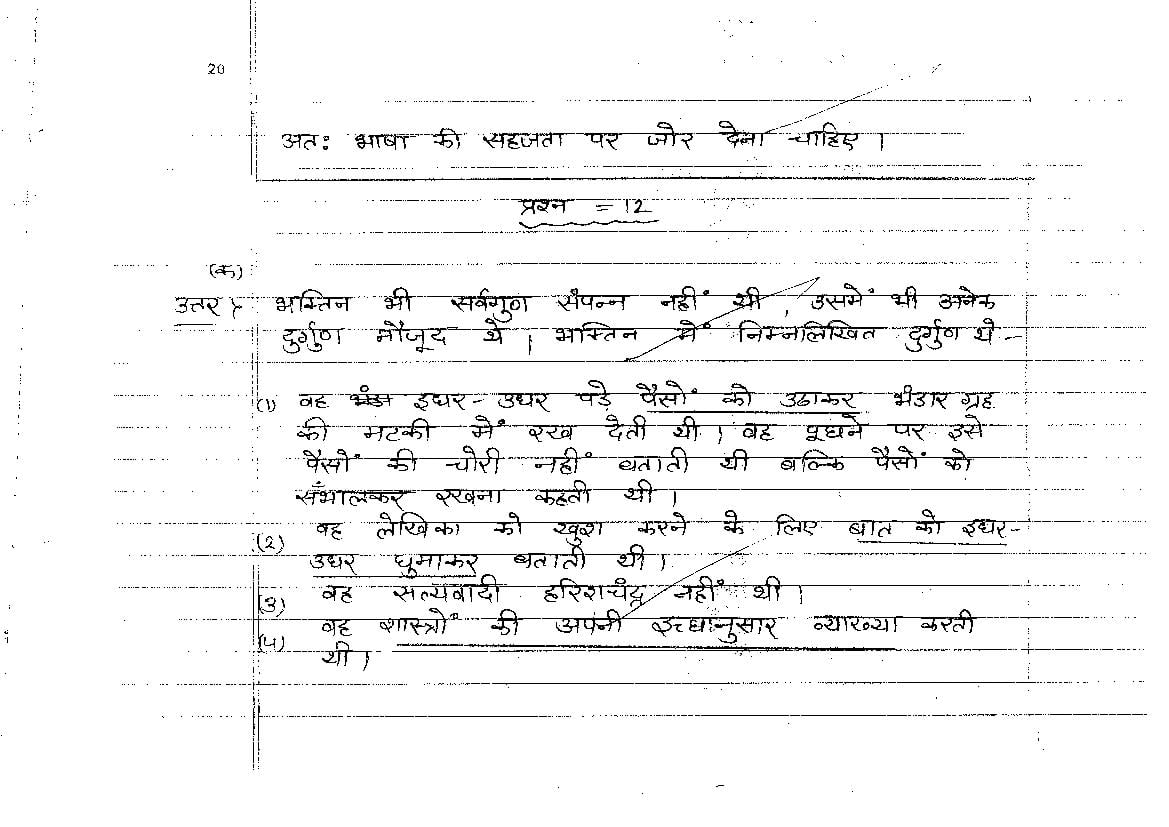 20
अतः भाषा की सहजता पर जोर देना चाहिए।
प्रश्न = 12
(क)
उत्तर > भक्तिन भी सर्वगुण संपन्न नहीं थी, उसमें भी अनेक
दुर्गुण मौजूद थे। भक्तिन में निम्नलिखित दुर्गुण थे -
(1) वह इधर-उधर पड़े पैसों को उठाकर भंडार ग्रह
की मटकी में रख देती थी। वह पूछने पर इसे
पैसों की चोरी नहीं बताती थी बल्कि पैसों को
सँभालकर रखना कहती थी।
(2) वह लेखिका को खुश करने के लिए बात को इधर-
उधर घुमाकर बताती थी।
(3) वह सत्यवादी हरिशचंद्र नहीं थी।
(4) वह शास्त्रों की अपनी इच्छानुसार व्याख्या करती
थी।